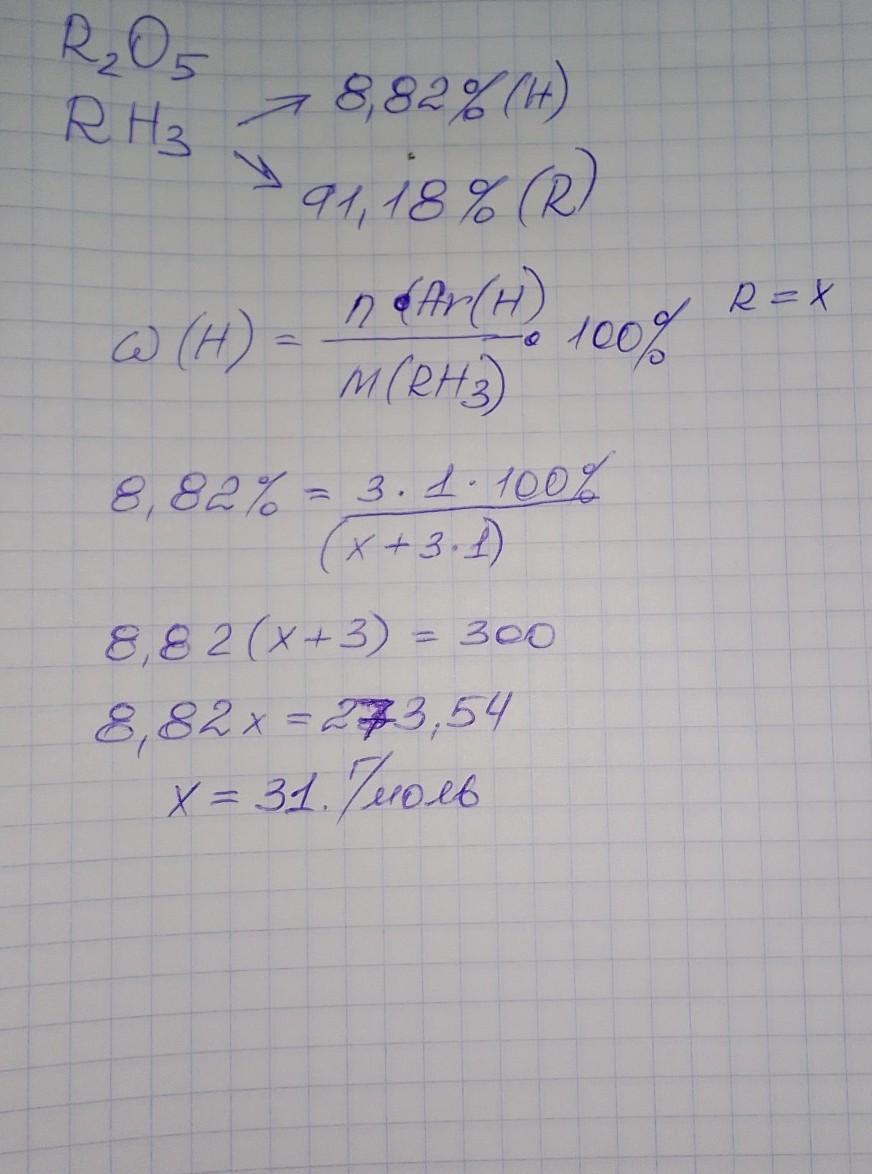 R₂O₅
RH₃ → 8,82% (H)
↘ 91,18% (R)
ω(H) = n·Ar(H) / M(RH₃) · 100% R = x
8,82% = 3·1·100% / (x+3·1)
8,82(x+3) = 300
8,82x = 273,54
x = 31 г/моль